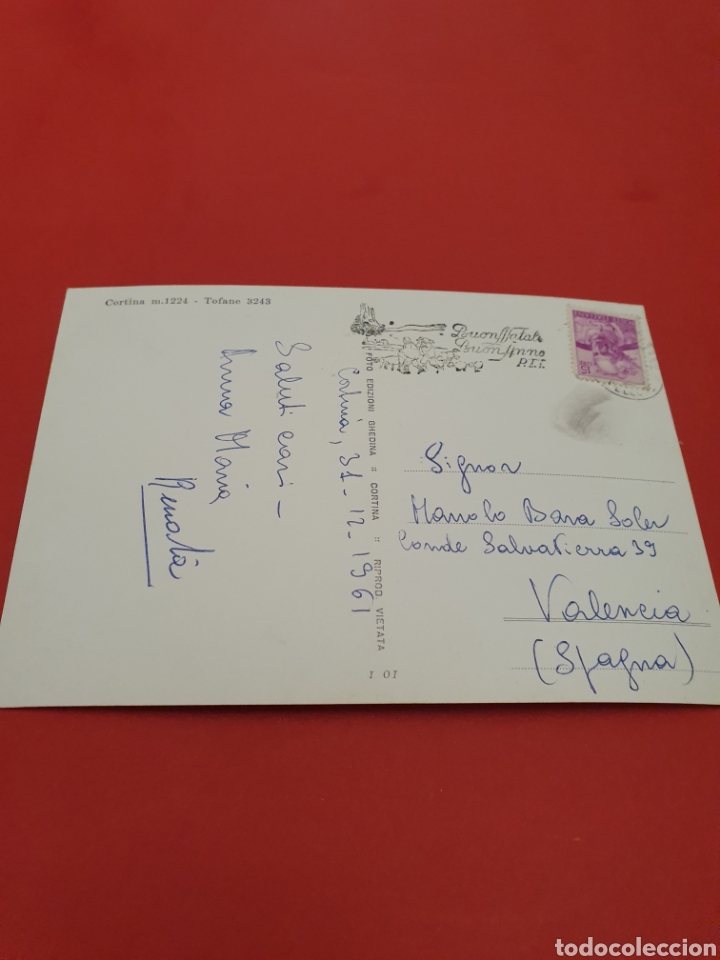 Cortina m.1224 - Tofane 3243
Buon Natale
Buon Anno
P.T.T.
Cortina, 31-12-1961
Saluti cari -
Anna Maria,
Renata
FOTO EDIZIONI GHEDINA = CORTINA = RIPROD. VIETATA
Signor
Manolo Bara Soler
Conde Salvatierra 39
Valencia
(Spagna)
I OI
todocoleccion